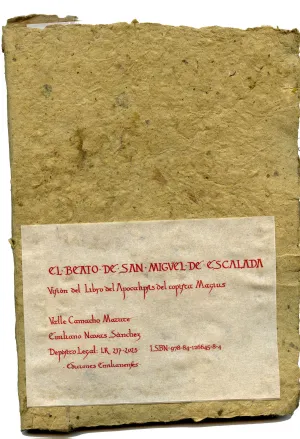 EL·BEATO·DE·SAN·MIGUEL·DE·ESCALADA
Visión del Libro del Apocalipsis del copista Magius
Valle Camacho Matute
Emiliano Navas Sánchez
Depósito Legal: LR 217-2023 ISBN-978-84-126645-8-4
· Ediciones Emilianenses